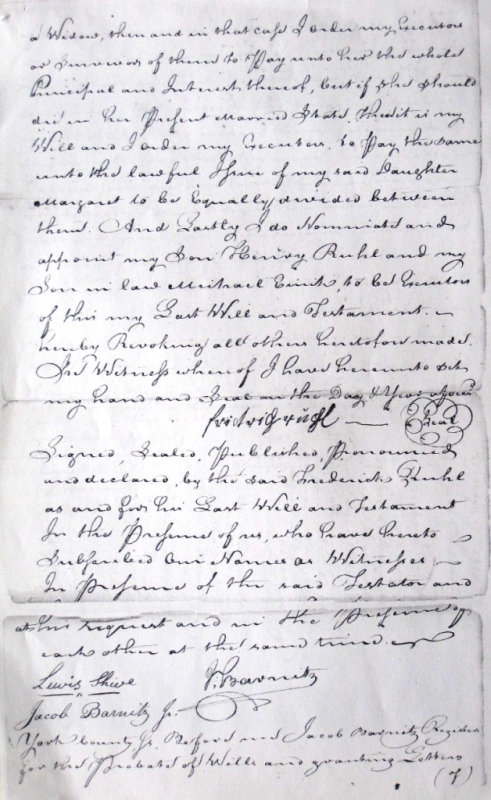 a Widow, then and in that case I order my Executors
or Survivor of them to Pay unto her the whole
Principal and Interest thereof, but if she should
die in her Present Married State, then it is my
Will and I order my Executors, to Pay the same
unto the lawful Issue of my said Daughter
Margaret to be Equally divided between
them. And Lastly I do Nominate and
appoint my Son Henry Ruhl and my
Son in law Michael to be Executors
of this my Last Will and Testament.
hereby Revoking all others heretofore made.
In Witness whereof I have hereunto set
my hand and Seal on the Day & Year afores'd
fridrich rühl Seal
Signed, Sealed, Published, Pronounced
and declared, by the said Frederick Ruhl
as and for his Last Will and Testament
In the Presence of us, who have hereto
Subscribed Our Names as Witnesses
In Presence of the said Testator and
at his request and in the Presence of
each other at the same time.
Lewis Shive J. Barnitz
Jacob Barnitz Jr.
York County Ss. Before me Jacob Barnitz Register
for the Probate of Wills and granting Letters
(7)